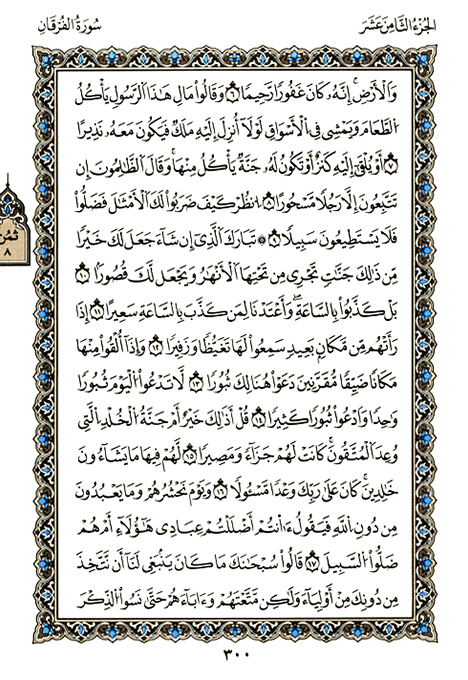 الجُزْءُ الثَّامِنَ عَشَرَ
سُورَةُ الفُرْقَانِ
وَالْأَرْضِ إِنَّهُ كَانَ غَفُورًا رَّحِيمًا ٦ وَقَالُوا مَالِ هَٰذَا الرَّسُولِ يَأْكُلُ
الطَّعَامَ وَيَمْشِي فِي الْأَسْوَاقِ لَوْلَا أُنزِلَ إِلَيْهِ مَلَكٌ فَيَكُونَ مَعَهُ نَذِيرًا
٧ أَوْ يُلْقَىٰ إِلَيْهِ كَنزٌ أَوْ تَكُونُ لَهُ جَنَّةٌ يَأْكُلُ مِنْهَا وَقَالَ الظَّالِمُونَ إِن
تَتَّبِعُونَ إِلَّا رَجُلًا مَّسْحُورًا ٨ انظُرْ كَيْفَ ضَرَبُوا لَكَ الْأَمْثَالَ فَضَلُّوا
فَلَا يَسْتَطِيعُونَ سَبِيلًا ٩ ۞ تَبَارَكَ الَّذِي إِن شَاءَ جَعَلَ لَكَ خَيْرًا
مِّن ذَٰلِكَ جَنَّاتٍ تَجْرِي مِن تَحْتِهَا الْأَنْهَارُ وَيَجْعَل لَّكَ قُصُورًا ١٠
بَلْ كَذَّبُوا بِالسَّاعَةِ وَأَعْتَدْنَا لِمَن كَذَّبَ بِالسَّاعَةِ سَعِيرًا ١١ إِذَا
رَأَتْهُم مِّن مَّكَانٍ بَعِيدٍ سَمِعُوا لَهَا تَغَيُّظًا وَزَفِيرًا ١٢ وَإِذَا أُلْقُوا مِنْهَا
مَكَانًا ضَيِّقًا مُّقَرَّنِينَ دَعَوْا هُنَالِكَ ثُبُورًا ١٣ لَّا تَدْعُوا الْيَوْمَ ثُبُورًا
وَاحِدًا وَادْعُوا ثُبُورًا كَثِيرًا ١٤ قُلْ أَذَٰلِكَ خَيْرٌ أَمْ جَنَّةُ الْخُلْدِ الَّتِي
وُعِدَ الْمُتَّقُونَ كَانَتْ لَهُمْ جَزَاءً وَمَصِيرًا ١٥ لَّهُمْ فِيهَا مَا يَشَاءُونَ
خَالِدِينَ كَانَ عَلَىٰ رَبِّكَ وَعْدًا مَّسْئُولًا ١٦ وَيَوْمَ نَحْشُرُهُمْ وَمَا يَعْبُدُونَ
مِن دُونِ اللَّهِ فَيَقُولُ ءَأَنتُمْ أَضْلَلْتُمْ عِبَادِي هَٰؤُلَاءِ أَمْ هُمْ
ضَلُّوا السَّبِيلَ ١٧ قَالُوا سُبْحَانَكَ مَا كَانَ يَنبَغِي لَنَا أَن نَّتَّخِذَ
مِن دُونِكَ مِنْ أَوْلِيَاءَ وَلَٰكِن مَّتَّعْتَهُمْ وَءَابَاءَهُمْ حَتَّىٰ نَسُوا الذِّكْرَ
ثُمُن
٨
٣٠٠